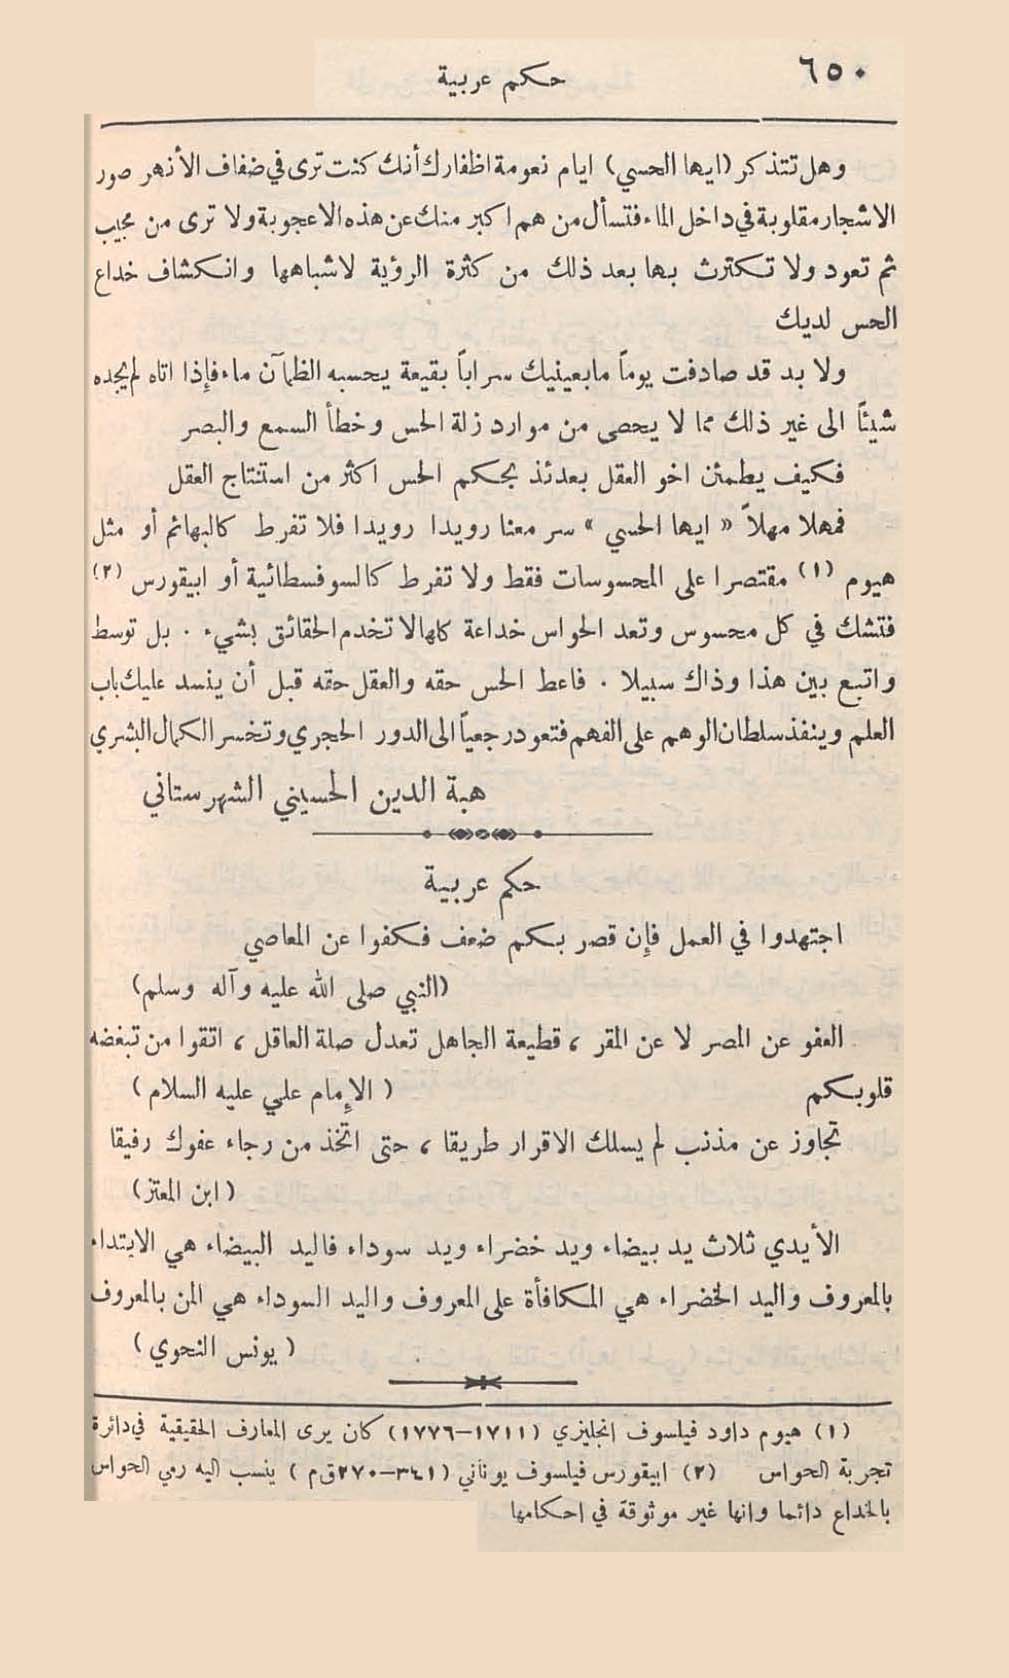 ٦٥٠
حكم عربية
وهل تتذكر (ايها الحسي) ايام نعومة اظفارك أنك كنت ترى في ضفاف الأنهر صور
الاشجار مقلوبة في داخل الماء فتسأل من هم اكبر منك عن هذه الاعجوبة ولا ترى من مجيب
ثم تعود ولا تكترث بها بعد ذلك من كثرة الرؤية لاشباهها وانكشاف خداع
الحس لديك
ولا بد قد صادفت يوماً ما بعينيك سراباً بقيعة يحسبه الظمآن ماء فإذا اتاه لم يجده
شيئاً الى غير ذلك مما لا يحصى من موارد زلة الحس وخطأ السمع والبصر
فكيف يطمئن اخو العقل بعدئذ بحكم الحس اكثر من استنتاج العقل
فمهلا مهلاً « ايها الحسي » سر معنا رويدا رويدا فلا تفرط كالبهائم أو مثل
هيوم (١) مقتصرا على المحسوسات فقط ولا تفرط كالسوفسطائية أو ابيقورس (٢)
فتشك في كل محسوس وتعد الحواس خداعة كلها لا تخدم الحقائق بشيء . بل توسط
واتبع بين هذا وذاك سبيلا . فاعط الحس حقه والعقل حقه قبل أن ينسد عليك باب
العلم وينفذ سلطان الوهم على الفهم فتعود رجعياً الى الدور الحجري وتخسر الكمال البشري
هبة الدين الحسيني الشهرستاني
حكم عربية
اجتهدوا في العمل فإن قصر بكم ضعف فكفوا عن المعاصي
(النبي صلى الله عليه وآله وسلم)
العفو عن المصر لا عن المقر ، قطيعة الجاهل تعدل صلة العاقل ، اتقوا من تبغضه
قلوبكم ( الإمام علي عليه السلام )
تجاوز عن مذنب لم يسلك الاقرار طريقا ، حتى اتخذ من رجاء عفوك رفيقا
(ابن المعتز)
الأيدي ثلاث يد بيضاء ويد خضراء ويد سوداء فاليد البيضاء هي الابتداء
بالمعروف واليد الخضراء هي المكافأة على المعروف واليد السوداء هي المن بالمعروف
( يونس النحوي )
(١) هيوم داود فيلسوف انجليزي (١٧١١–١٧٧٦) كان يرى المعارف الحقيقية في دائرة
تجربة الحواس (٢) ابيقورس فيلسوف يوناني (٣٤١–٢٧٠ق م ) ينسب اليه رمي الحواس
بالخداع دائما وانها غير موثوقة في احكامها